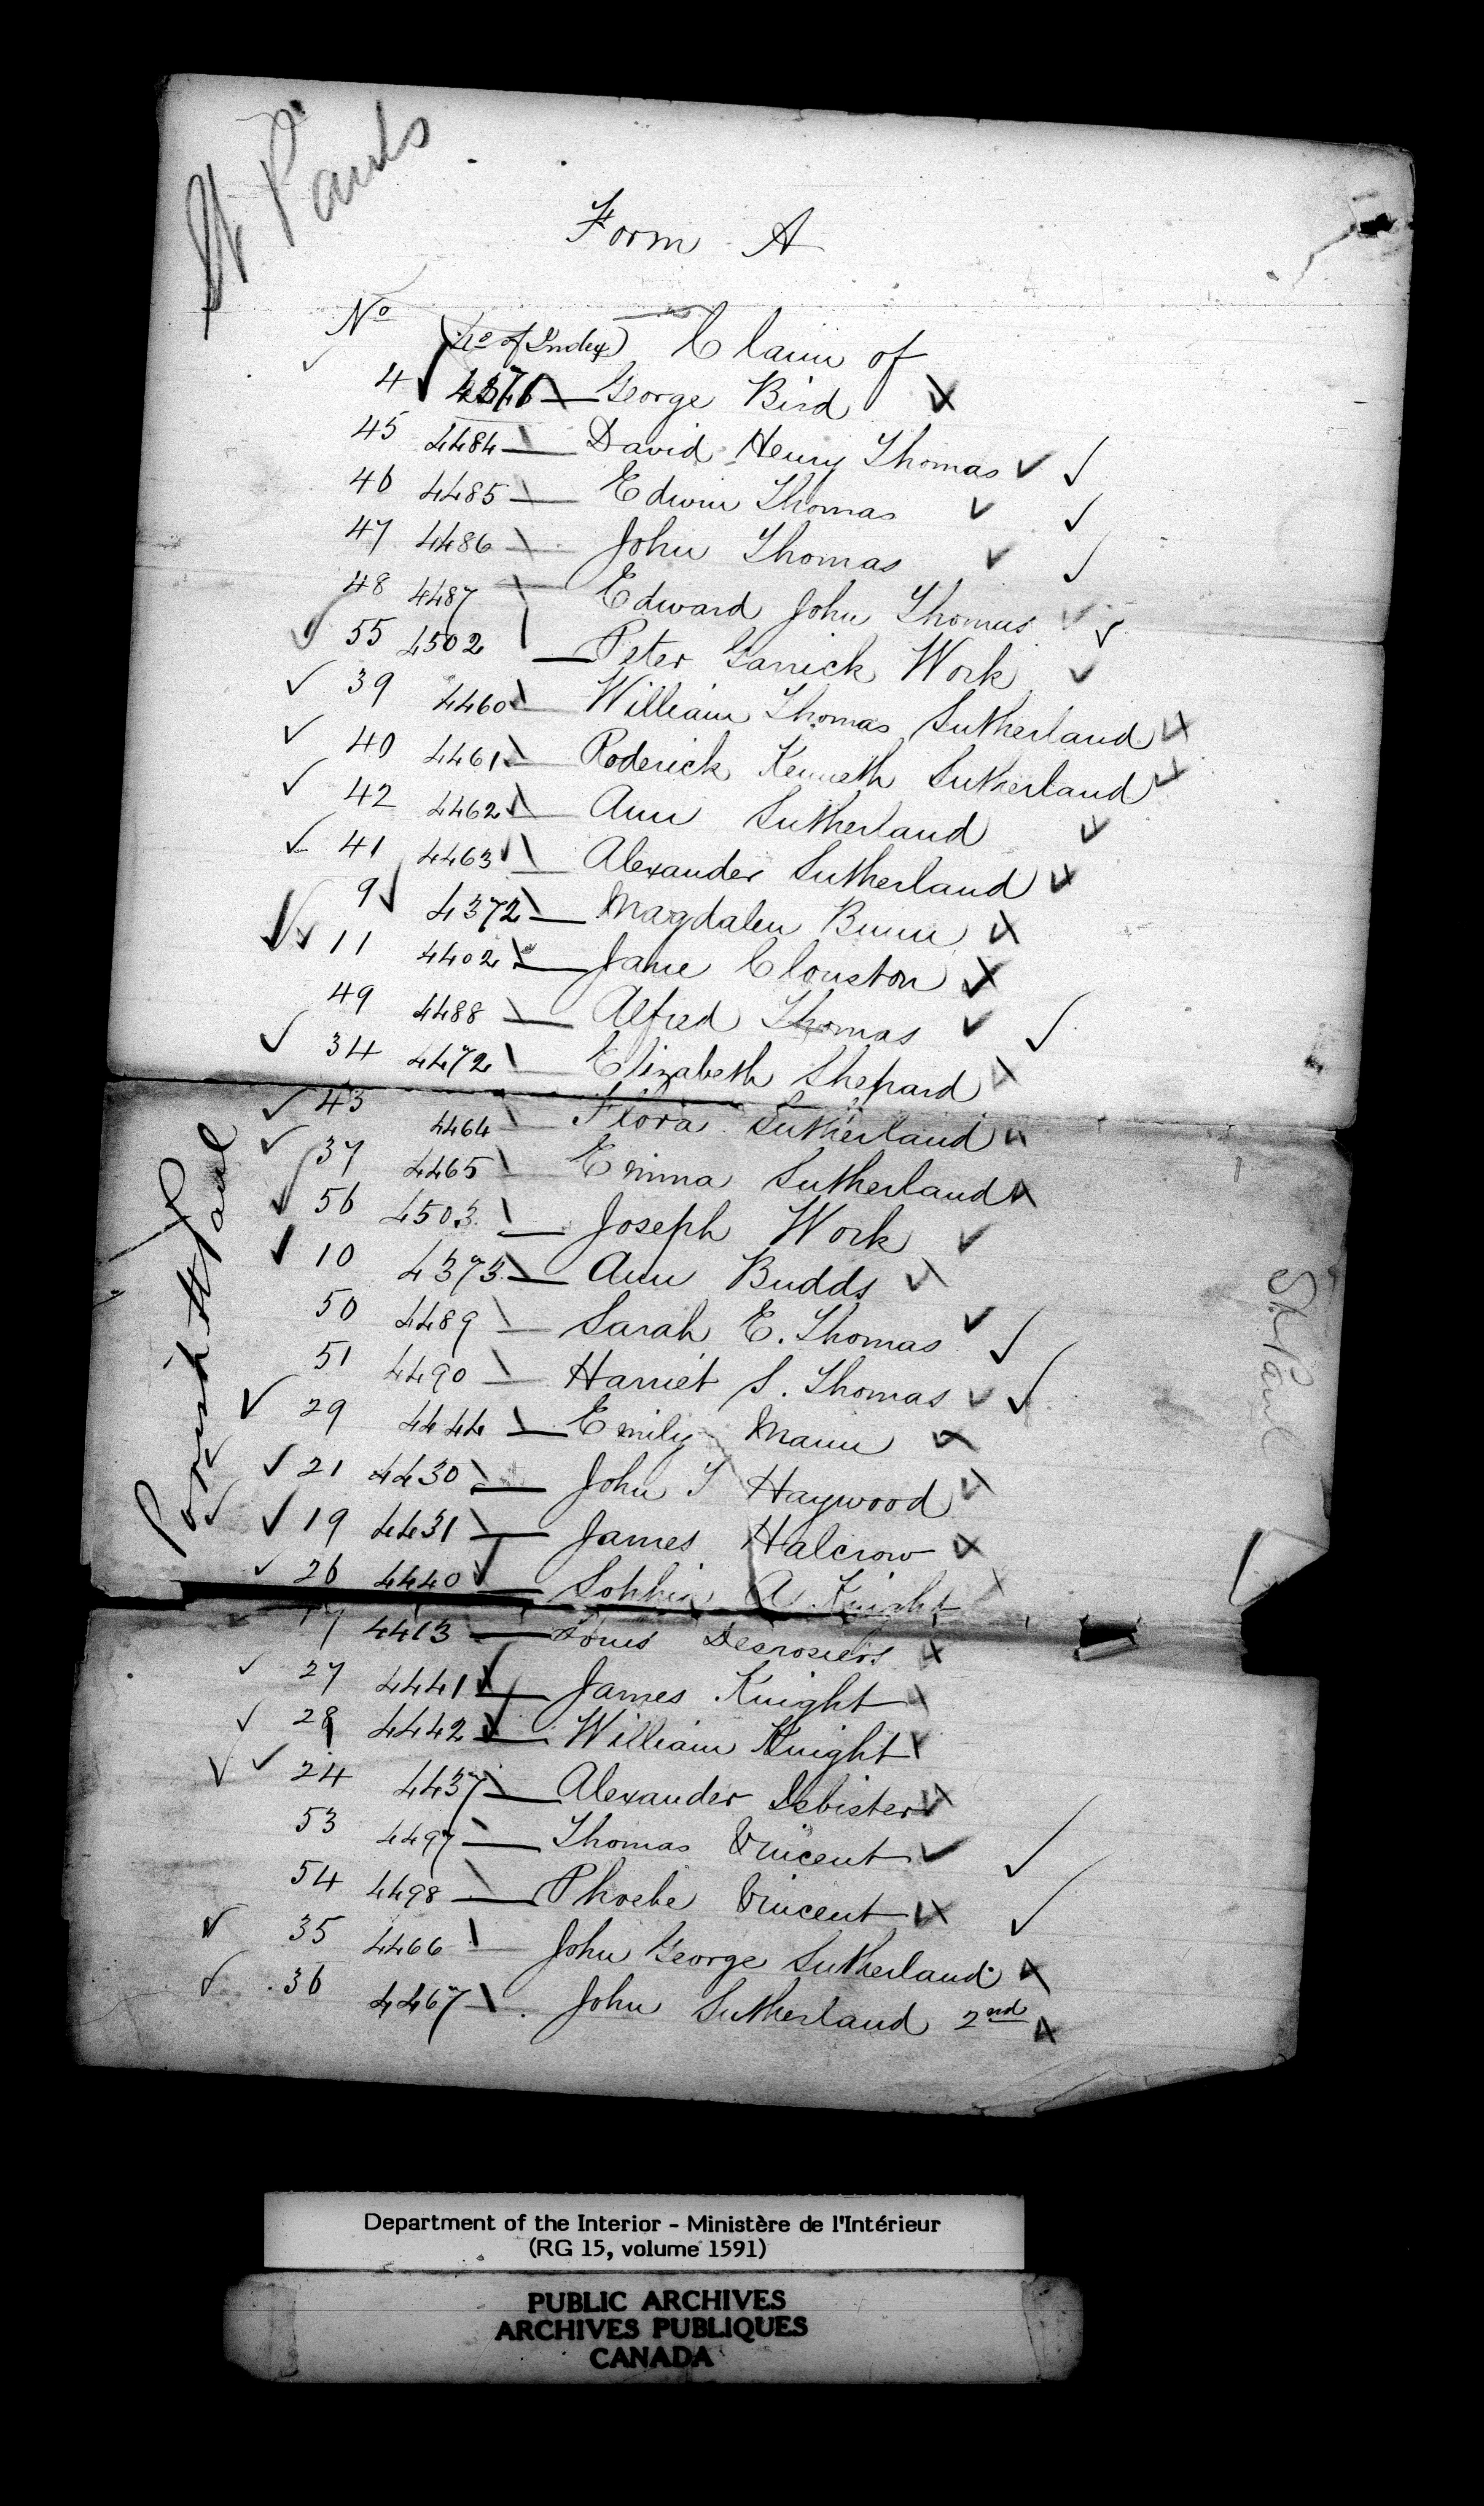 St Pauls
Form A
No (No of Index) Claim of
4 George Bird
45 4484 David Henry Thomas
46 4485 Edwin Thomas
47 4486 John Thomas
48 4487 Edward John Thomas
55 4502 Peter Garrick Work
39 4460 William Thomas Sutherland
40 4461 Roderick Kenneth Sutherland
42 4462 Ann Sutherland
41 4463 Alexander Sutherland
9 4372 Magdalen Bunn
11 4402 Jane Clouston
49 4488 Alfred Thomas
34 4472 Elizabeth Shepard
43 4464 Flora Sutherland
37 4465 Emma Sutherland
56 4503 Joseph Work
10 4373 Ann Budds
50 4489 Sarah E. Thomas
51 4490 Harriet S. Thomas
29 4444 Emily Mann
21 4430 John T Haywood
19 4431 James Halcrow
26 4440 Sophia A Knight
4413 Louis Desrosiers
27 4441 James Knight
28 4442 William Knight
24 4437 Alexander Isbister
53 4497 Thomas Vincent
54 4498 Phoebe Vincent
35 4466 John George Sutherland
36 4467 John Sutherland 2nd
Parish St Paul
St Paul
Department of the Interior - Ministère de l'Intérieur
(RG 15, volume 1591)
PUBLIC ARCHIVES
ARCHIVES PUBLIQUES
CANADA